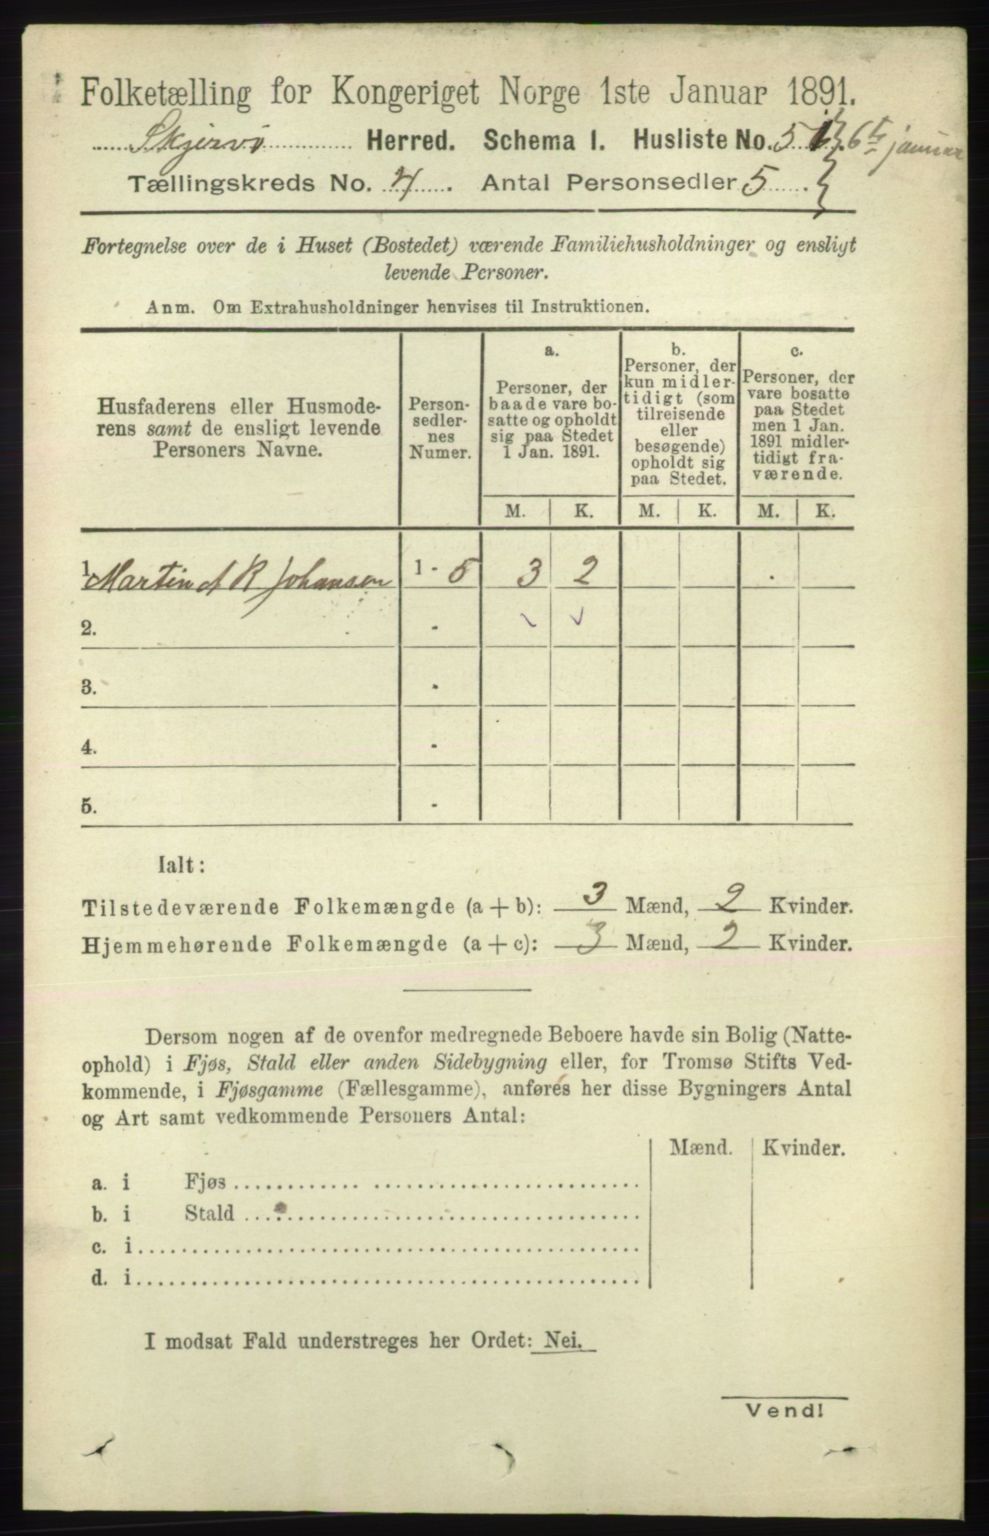 Folketælling for Kongeriget Norge 1ste Januar 1891.
Skjervø Herred. Schema I. Husliste No. 5 6te januar
Tællingskreds No. 4. Antal Personsedler 5.
Fortegnelse over de i Huset (Bostedet) værende Familiehusholdninger og ensligt
levende Personer.
Anm. Om Extrahusholdninger henvises til Instruktionen.
Husfaderens eller Husmode-
rens samt de ensligt levende
Personers Navne.
Person-
sedler-
nes
Numer.
a.
Personer, der
baade vare bo-
satte og opholdt
sig paa Stedet
1 Jan. 1891.
b.
Personer, der
kun midler-
tidigt (som
tilreisende
eller
besøgende)
opholdt sig
paa Stedet.
c.
Personer, der
vare bosatte
paa Stedet
men 1 Jan.
1891 midler-
tidigt fra-
værende.
M. K. M. K. M. K.
1. Martin A R Johansen 1 - 5 3 2
2. -
3. -
4. -
5. -
Ialt:
Tilstedeværende Folkemængde (a + b): 3 Mænd, 2 Kvinder.
Hjemmehørende Folkemængde (a + c): 3 Mænd, 2 Kvinder.
Dersom nogen af de ovenfor medregnede Beboere havde sin Bolig (Natte-
ophold) i Fjøs, Stald eller anden Sidebygning eller, for Tromsø Stifts Ved-
kommende, i Fjøsgamme (Fællesgamme), anføres her disse Bygningers Antal
og Art samt vedkommende Personers Antal:
Mænd. Kvinder.
a. i Fjøs
b. i Stald
c. i
d. i
I modsat Fald understreges her Ordet: Nei.
Vend!